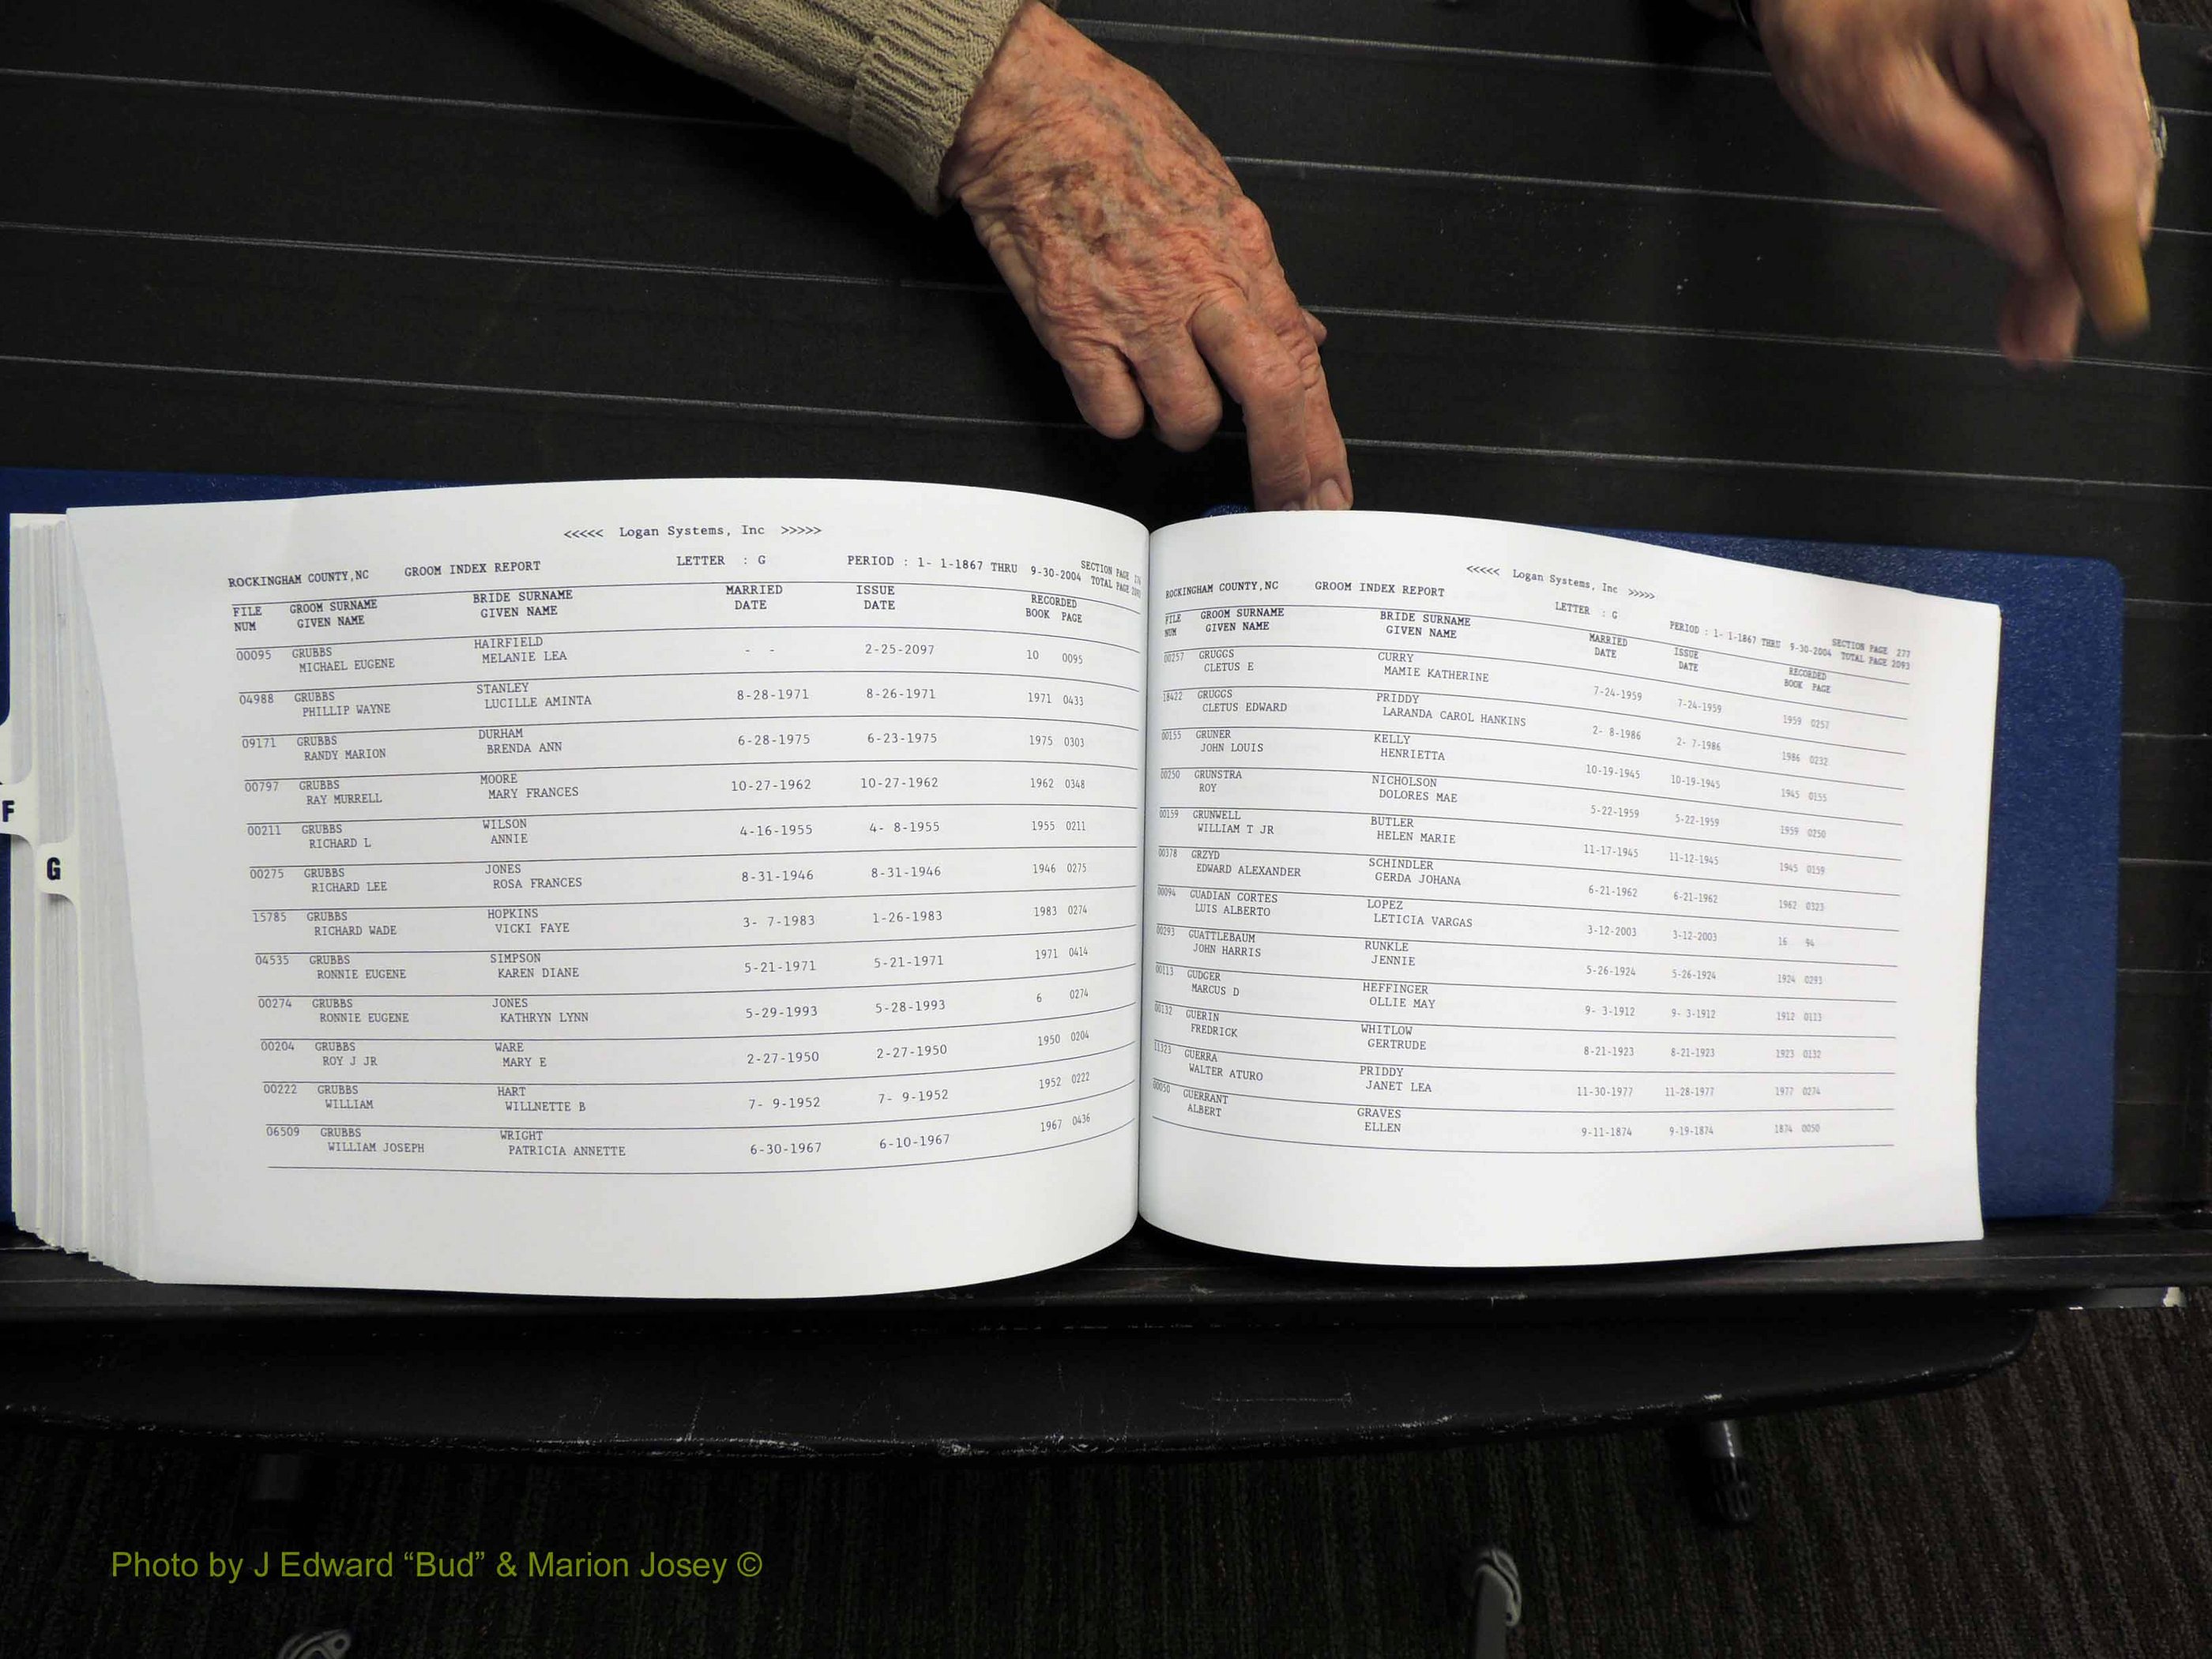 F
G
<<<<< Logan Systems, Inc >>>>>
ROCKINGHAM COUNTY,NC GROOM INDEX REPORT LETTER : G PERIOD : 1- 1-1867 THRU 9-30-2004 SECTION PAGE
TOTAL PAGE 2093
FILE GROOM SURNAME BRIDE SURNAME MARRIED ISSUE RECORDED
NUM GIVEN NAME GIVEN NAME DATE DATE BOOK PAGE
00095 GRUBBS HAIRFIELD - - 2-25-2097 10 0095
MICHAEL EUGENE MELANIE LEA
04988 GRUBBS STANLEY 8-28-1971 8-26-1971 1971 0433
PHILLIP WAYNE LUCILLE AMINTA
09171 GRUBBS DURHAM 6-28-1975 6-23-1975 1975 0303
RANDY MARION BRENDA ANN
00797 GRUBBS MOORE 10-27-1962 10-27-1962 1962 0348
RAY MURRELL MARY FRANCES
00211 GRUBBS WILSON 4-16-1955 4- 8-1955 1955 0211
RICHARD L ANNIE
00275 GRUBBS JONES 8-31-1946 8-31-1946 1946 0275
RICHARD LEE ROSA FRANCES
15785 GRUBBS HOPKINS 3- 7-1983 1-26-1983 1983 0274
RICHARD WADE VICKI FAYE
04535 GRUBBS SIMPSON 5-21-1971 5-21-1971 1971 0414
RONNIE EUGENE KAREN DIANE
00274 GRUBBS JONES 5-29-1993 5-28-1993 6 0274
RONNIE EUGENE KATHRYN LYNN
00204 GRUBBS WARE 2-27-1950 2-27-1950 1950 0204
ROY J JR MARY E
00222 GRUBBS HART 7- 9-1952 7- 9-1952 1952 0222
WILLIAM WILLNETTE B
06509 GRUBBS WRIGHT 6-30-1967 6-10-1967 1967 0436
WILLIAM JOSEPH PATRICIA ANNETTE
<<<<< Logan Systems, Inc >>>>>
ROCKINGHAM COUNTY,NC GROOM INDEX REPORT LETTER : G PERIOD : 1- 1-1867 THRU 9-30-2004 SECTION PAGE 277
TOTAL PAGE 2093
FILE GROOM SURNAME BRIDE SURNAME MARRIED ISSUE RECORDED
NUM GIVEN NAME GIVEN NAME DATE DATE BOOK PAGE
00257 GRUGGS CURRY 7-24-1959 7-24-1959 1959 0257
CLETUS E MAMIE KATHERINE
18422 GRUGGS PRIDDY 2- 8-1986 2- 7-1986 1986 0232
CLETUS EDWARD LARANDA CAROL HANKINS
00155 GRUNER KELLY 10-19-1945 10-19-1945 1945 0155
JOHN LOUIS HENRIETTA
00250 GRUNSTRA NICHOLSON 5-22-1959 5-22-1959 1959 0250
ROY DOLORES MAE
00159 GRUNWELL BUTLER 11-17-1945 11-12-1945 1945 0159
WILLIAM T JR HELEN MARIE
00378 GRZYD SCHINDLER 6-21-1962 6-21-1962 1962 0323
EDWARD ALEXANDER GERDA JOHANA
00094 GUADIAN CORTES LOPEZ 3-12-2003 3-12-2003 16 94
LUIS ALBERTO LETICIA VARGAS
00293 GUATTLEBAUM RUNKLE 5-26-1924 5-26-1924 1924 0293
JOHN HARRIS JENNIE
00113 GUDGER HEFFINGER 9- 3-1912 9- 3-1912 1912 0113
MARCUS D OLLIE MAY
00132 GUERIN WHITLOW 8-21-1923 8-21-1923 1923 0132
FREDRICK GERTRUDE
11323 GUERRA PRIDDY 11-30-1977 11-28-1977 1977 0274
WALTER ATURO JANET LEA
00050 GUERRANT GRAVES 9-11-1874 9-19-1874 1874 0050
ALBERT ELLEN
Photo by J Edward “Bud” & Marion Josey ©